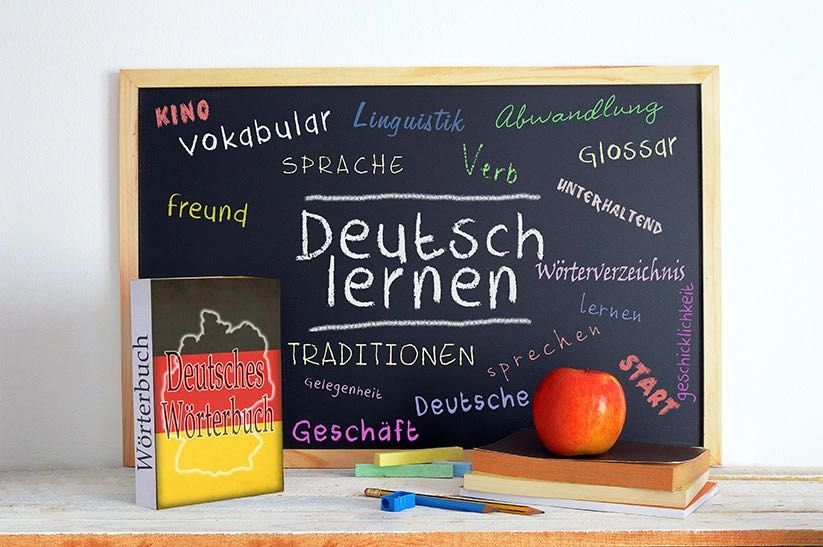 KINO
Vokabular
Linguistik
Abwandlung
SPRACHE
Verb
Glossar
freund
UNTERHALTEND
Deutsch
lernen
Wörterverzeichnis
lernen
geschicklichkeit
sprechen
TRADITIONEN
START
Gelegenheit
Deutsche
Geschäft
Wörterbuch
Deutsches
Wörterbuch